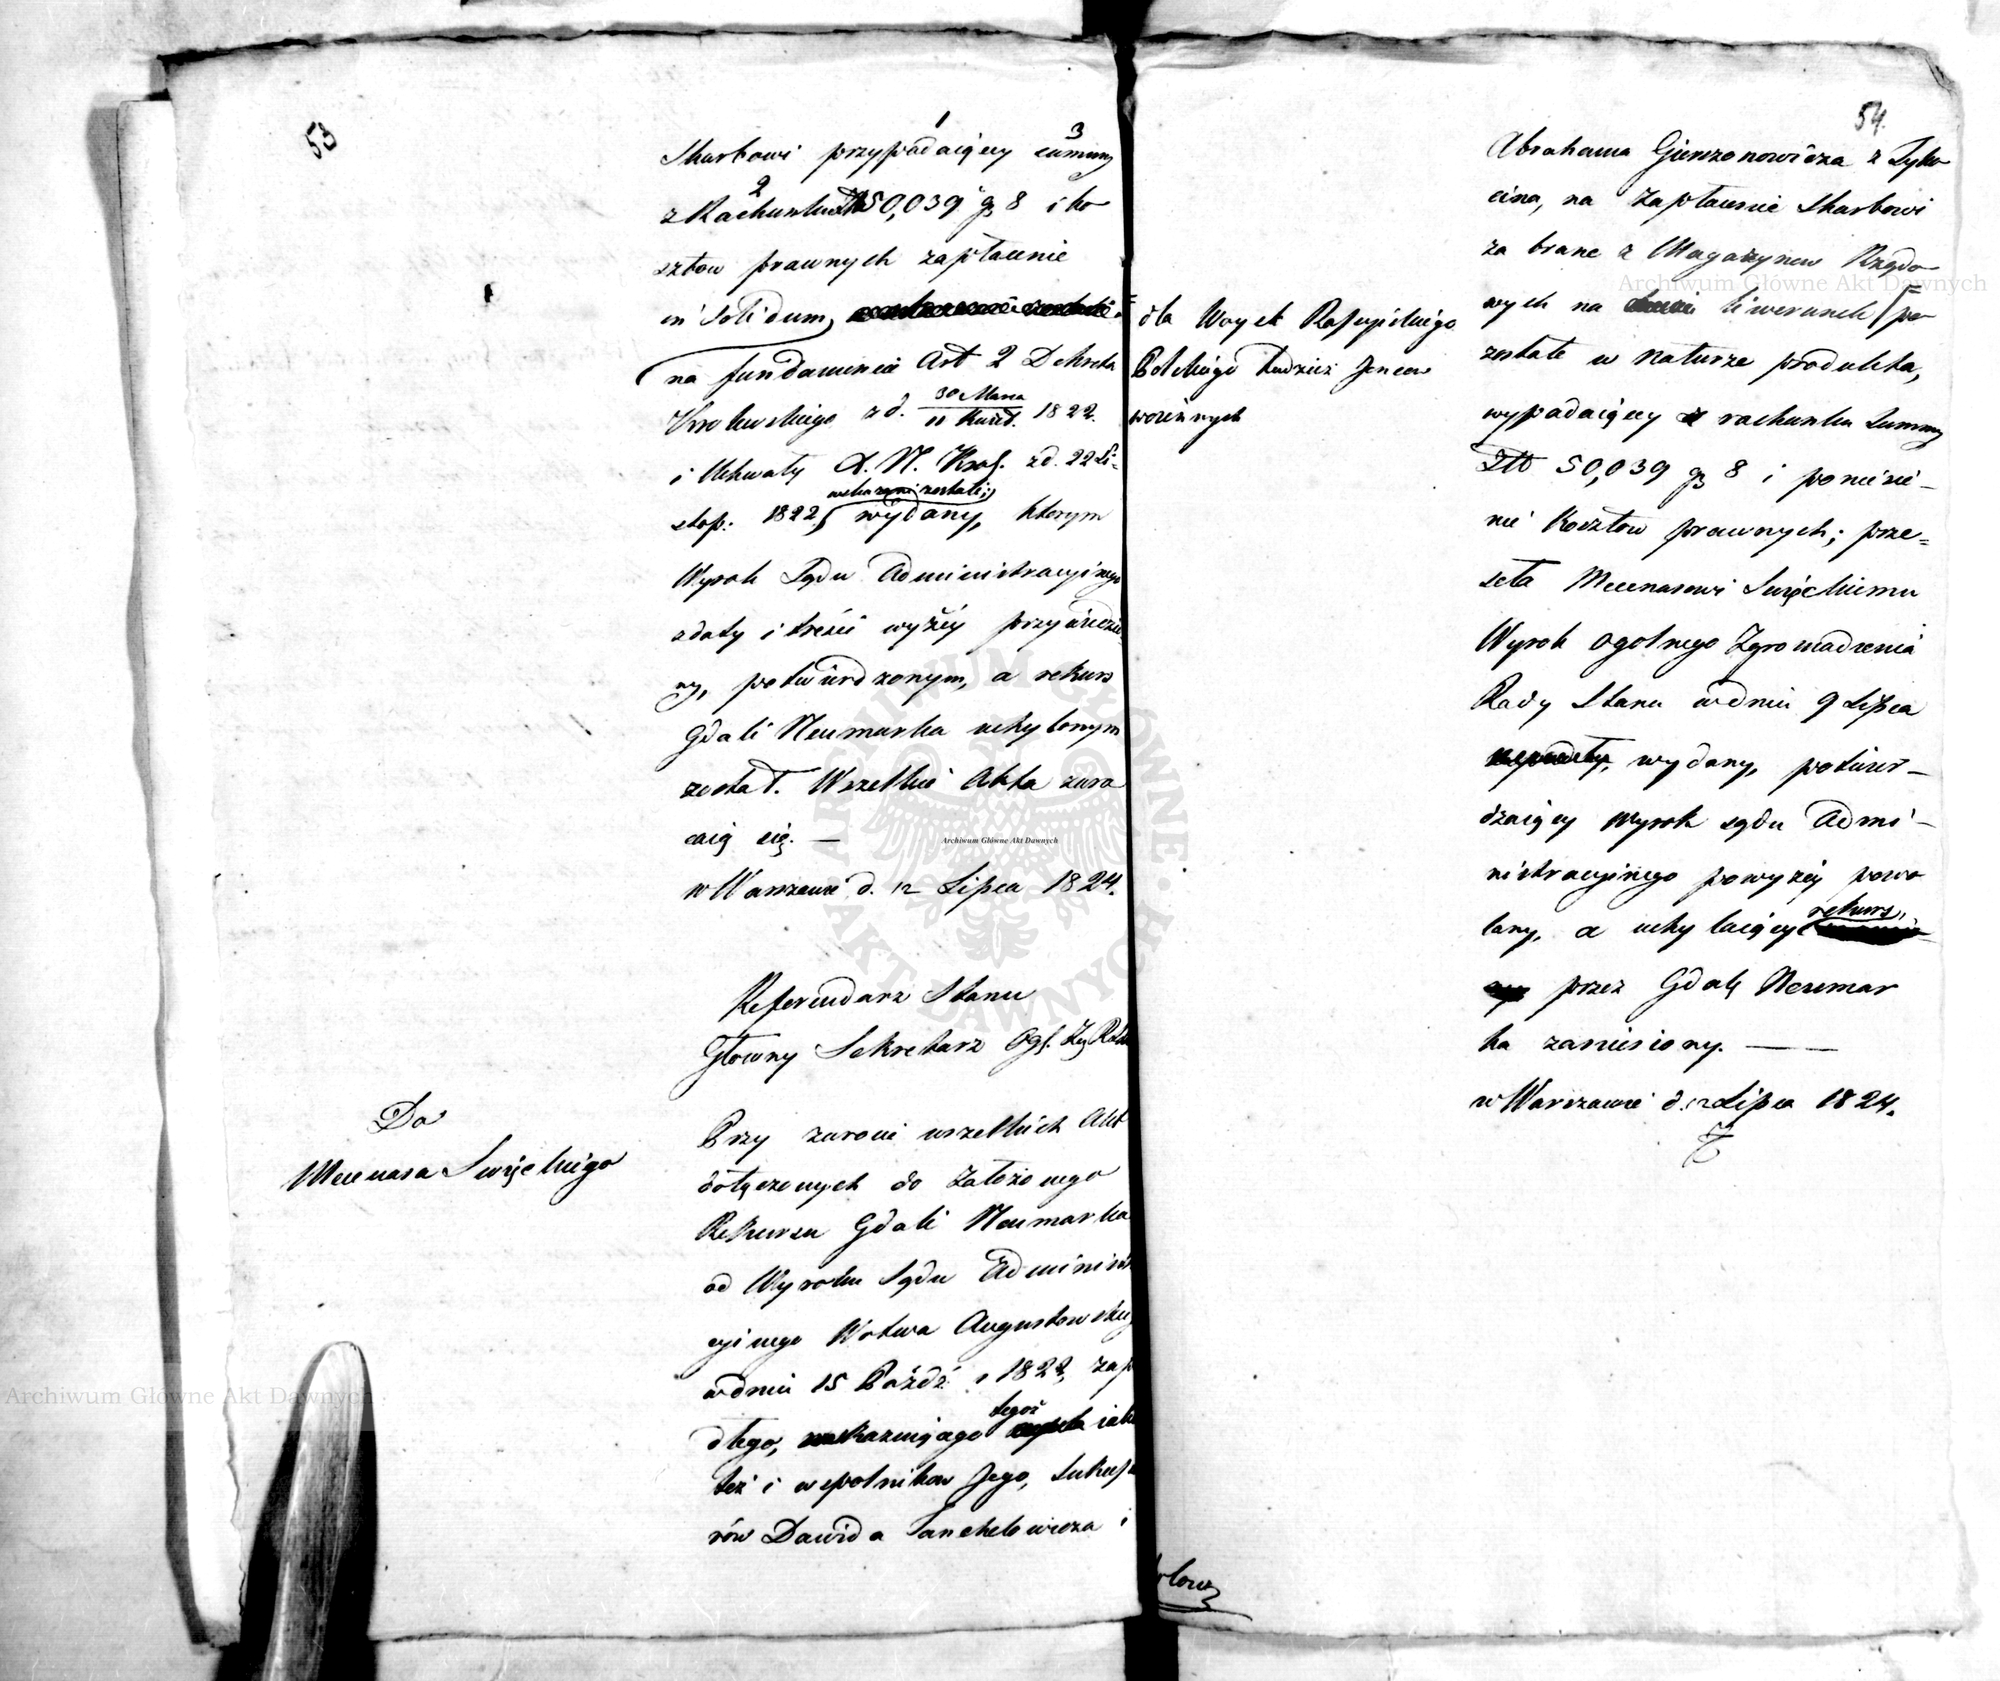 53
1 3
Skarbowi przypadaiącey summy
2
z Rachunku Złł 50,039 gr 8 i ko
sztow prawnych zapłacenie
in Solidum,
na fundamencie Art 2 Dekretu
Krolewskiego z d. 30 Marca 1822.
11 Kwiet.
i Uchwały X. N. Krol. z d. 22 Li-
wskazani zostali;
stop: 1822, wydany, którym
Wyrok Sądu Administracyinego
z daty i treści wyżey przywiedzio
ny, potwierdzonym, a rekurs
Gdali Neumarka uchylonym
został. Wszelkie Akta zwra
caią się. —
w Warszawie d. 12 Lipca 1824.
Referendarz Stanu
Główny Sekretarz Ogl. Zg. Rady
Do
Mecenasa Swięckiego
Przy zwrocie wszelkich Akt
dołączonych do Założonego
Rekursu Gdali Neumarka
od Wyroku Sądu Administra
cyinego Wotwa Augustowskieg
w dniu 15 Paźdź: r 1822, zapa
tegoż
dłego, wskazuiącego iako
też i wspolnikow Jego, Sukcesso
rów Dawida Tanchelowicza i
54.
Abrahama Gierszonowicza z Tyko
cina, na zapłacenie Skarbowi
za brane z Magazynow Rządo
wych na liwerunek po
dla Woysk Rossyiskiego
Polskiego tudzież Jencow
woiennych
zostałe w naturze produkta,
wypadaiącey z rachunku Summy
Złł 50,039 gr 8 i poniesie-
nie Kosztow prawnych; prze=
seła Mecenasowi Swięckiemu
Wyrok ogolnego Zgromadzenia
Rady Stanu w dniu 9 Lipca
wydany, potwier-
dzaiący wyrok sądu Admi-
nistracyinego powyżey powo
rekurs,
łany, a uchylaiący
przez Gdalę Neumar
ka zaniesiony. —
w Warszawie d. 12 Lipca 1824.
Archiwum Główne Akt Dawnych
Archiwum Główne Akt Dawnych
Archiwum Główne Akt Dawnych
ARCHIWUM GŁÓWNE · AKT DAWNYCH ·